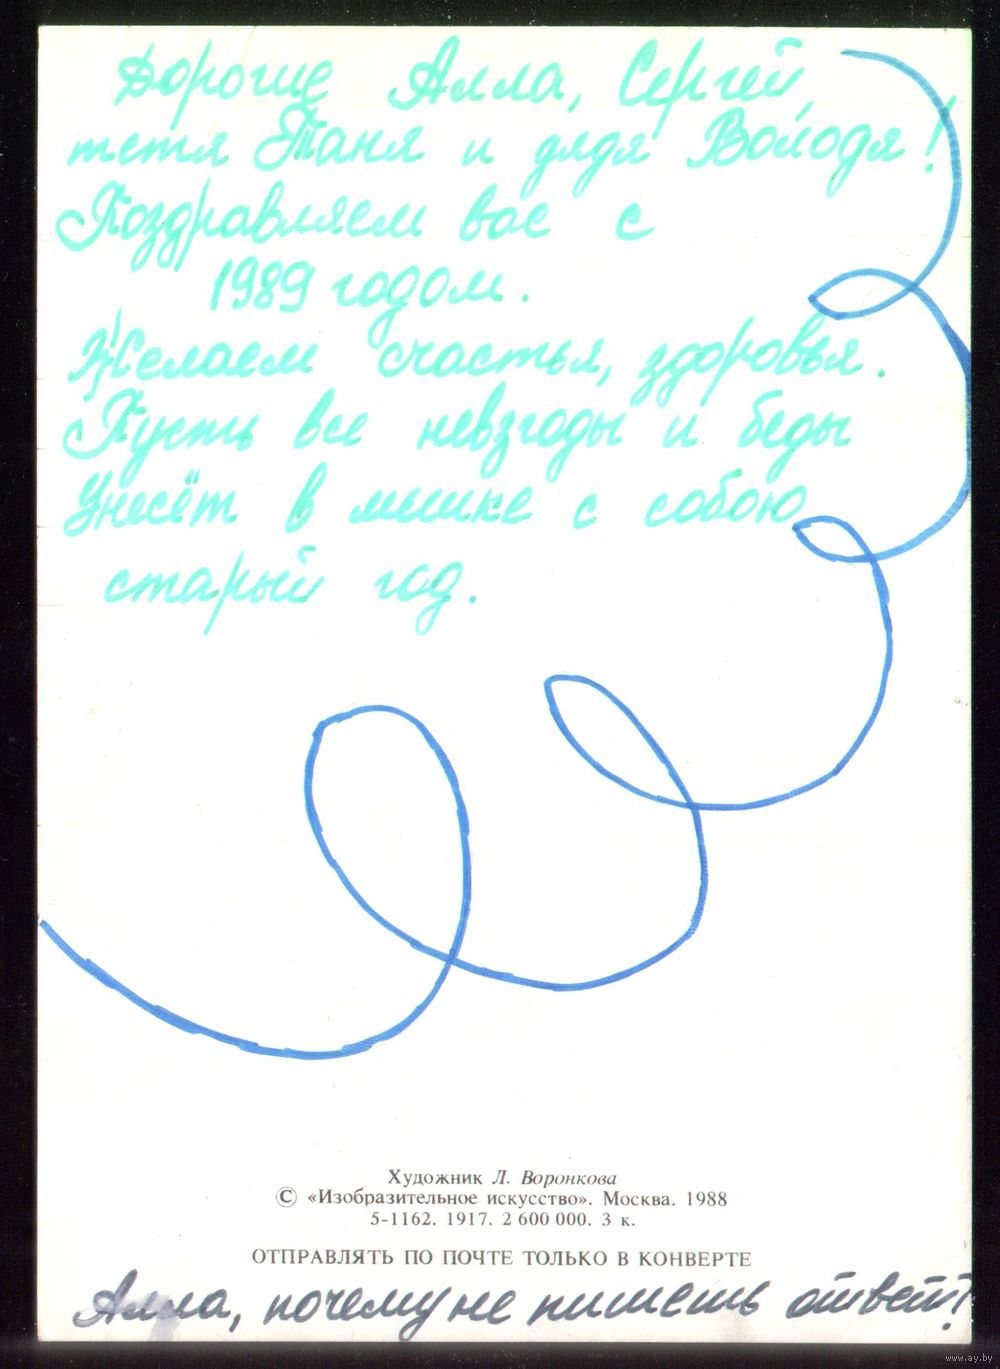 Дорогие Алла, Сергей,
тетя Таня и дядя Володя!
Поздравляем вас с
1989 годом.
Желаем счастья, здоровья.
Пусть все невзгоды и беды
Унесёт в мешке с собою
старый год.
Художник Л. Воронкова
© «Изобразительное искусство». Москва. 1988
5-1162. 1917. 2 600 000. 3 к.
ОТПРАВЛЯТЬ ПО ПОЧТЕ ТОЛЬКО В КОНВЕРТЕ
Алла, почему не пишешь ответ?
www.ay.by